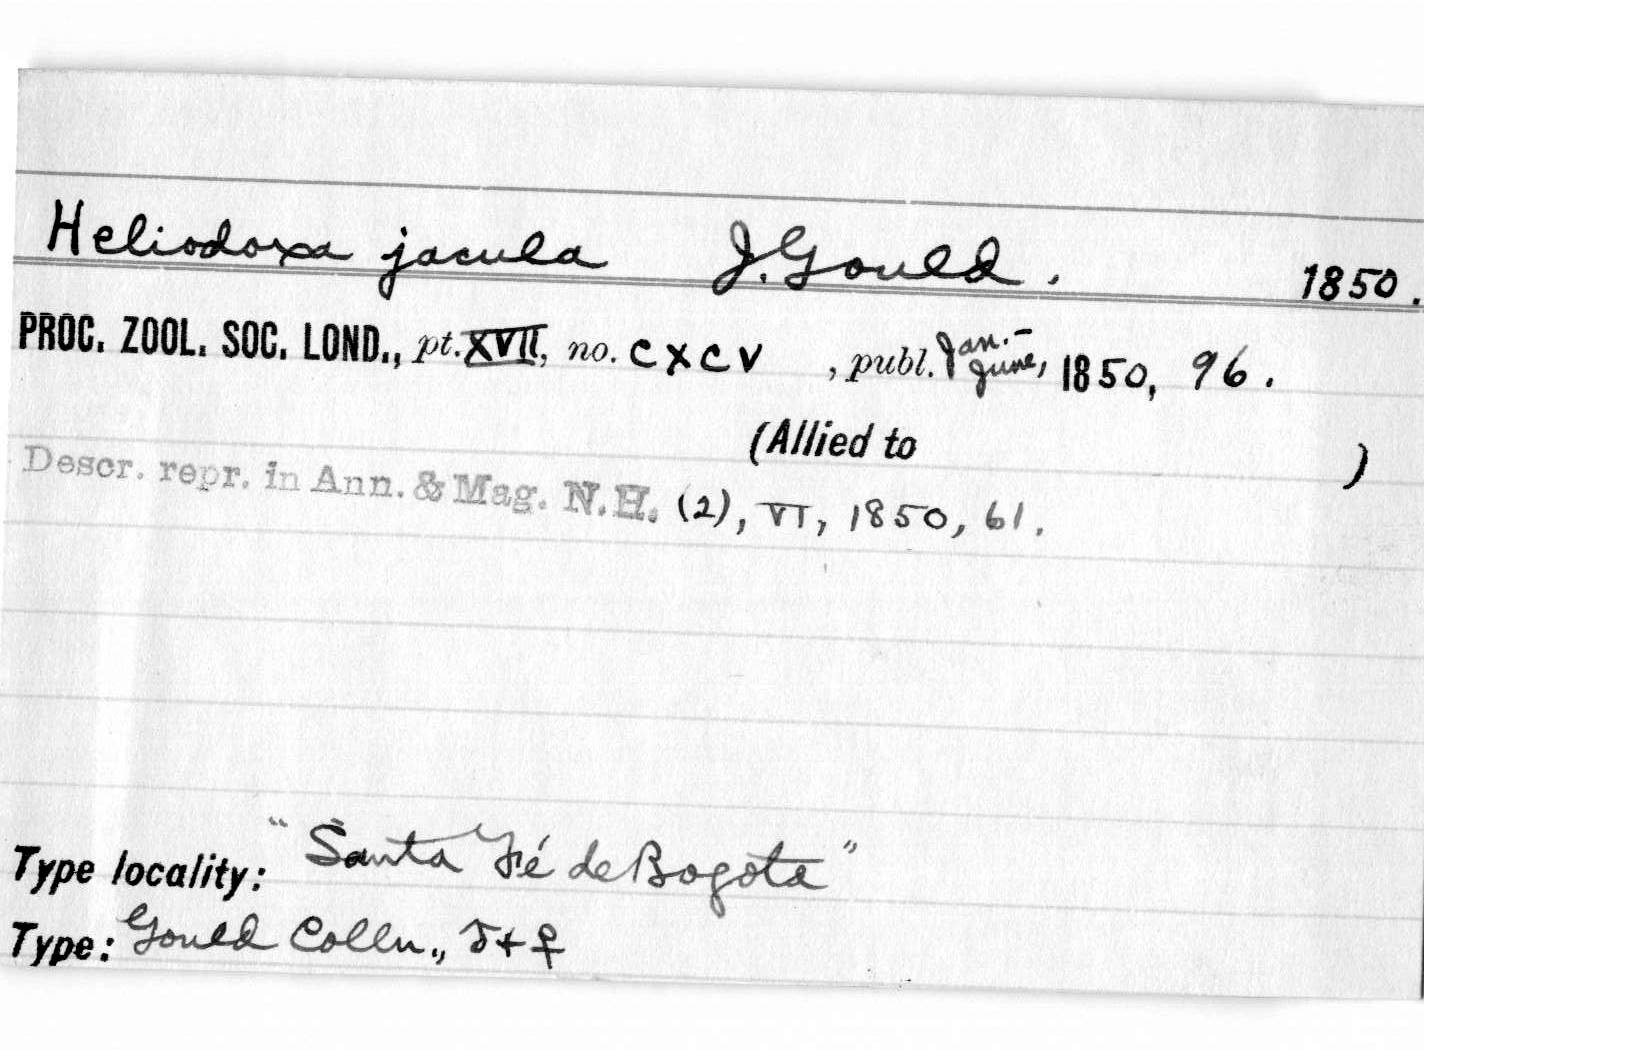 Heliodoxa jacula J. Gould. 1850.
PROC. ZOOL. SOC. LOND., pt. XVII, no. CXCV , publ. Jan.- June, 1850, 96.
(Allied to )
Descr. repr. in Ann. & Mag. N.H. (2), VI, 1850, 61.
Type locality: "Santa Fé de Bogota"
Type: Gould Colln., ♂ + ♀